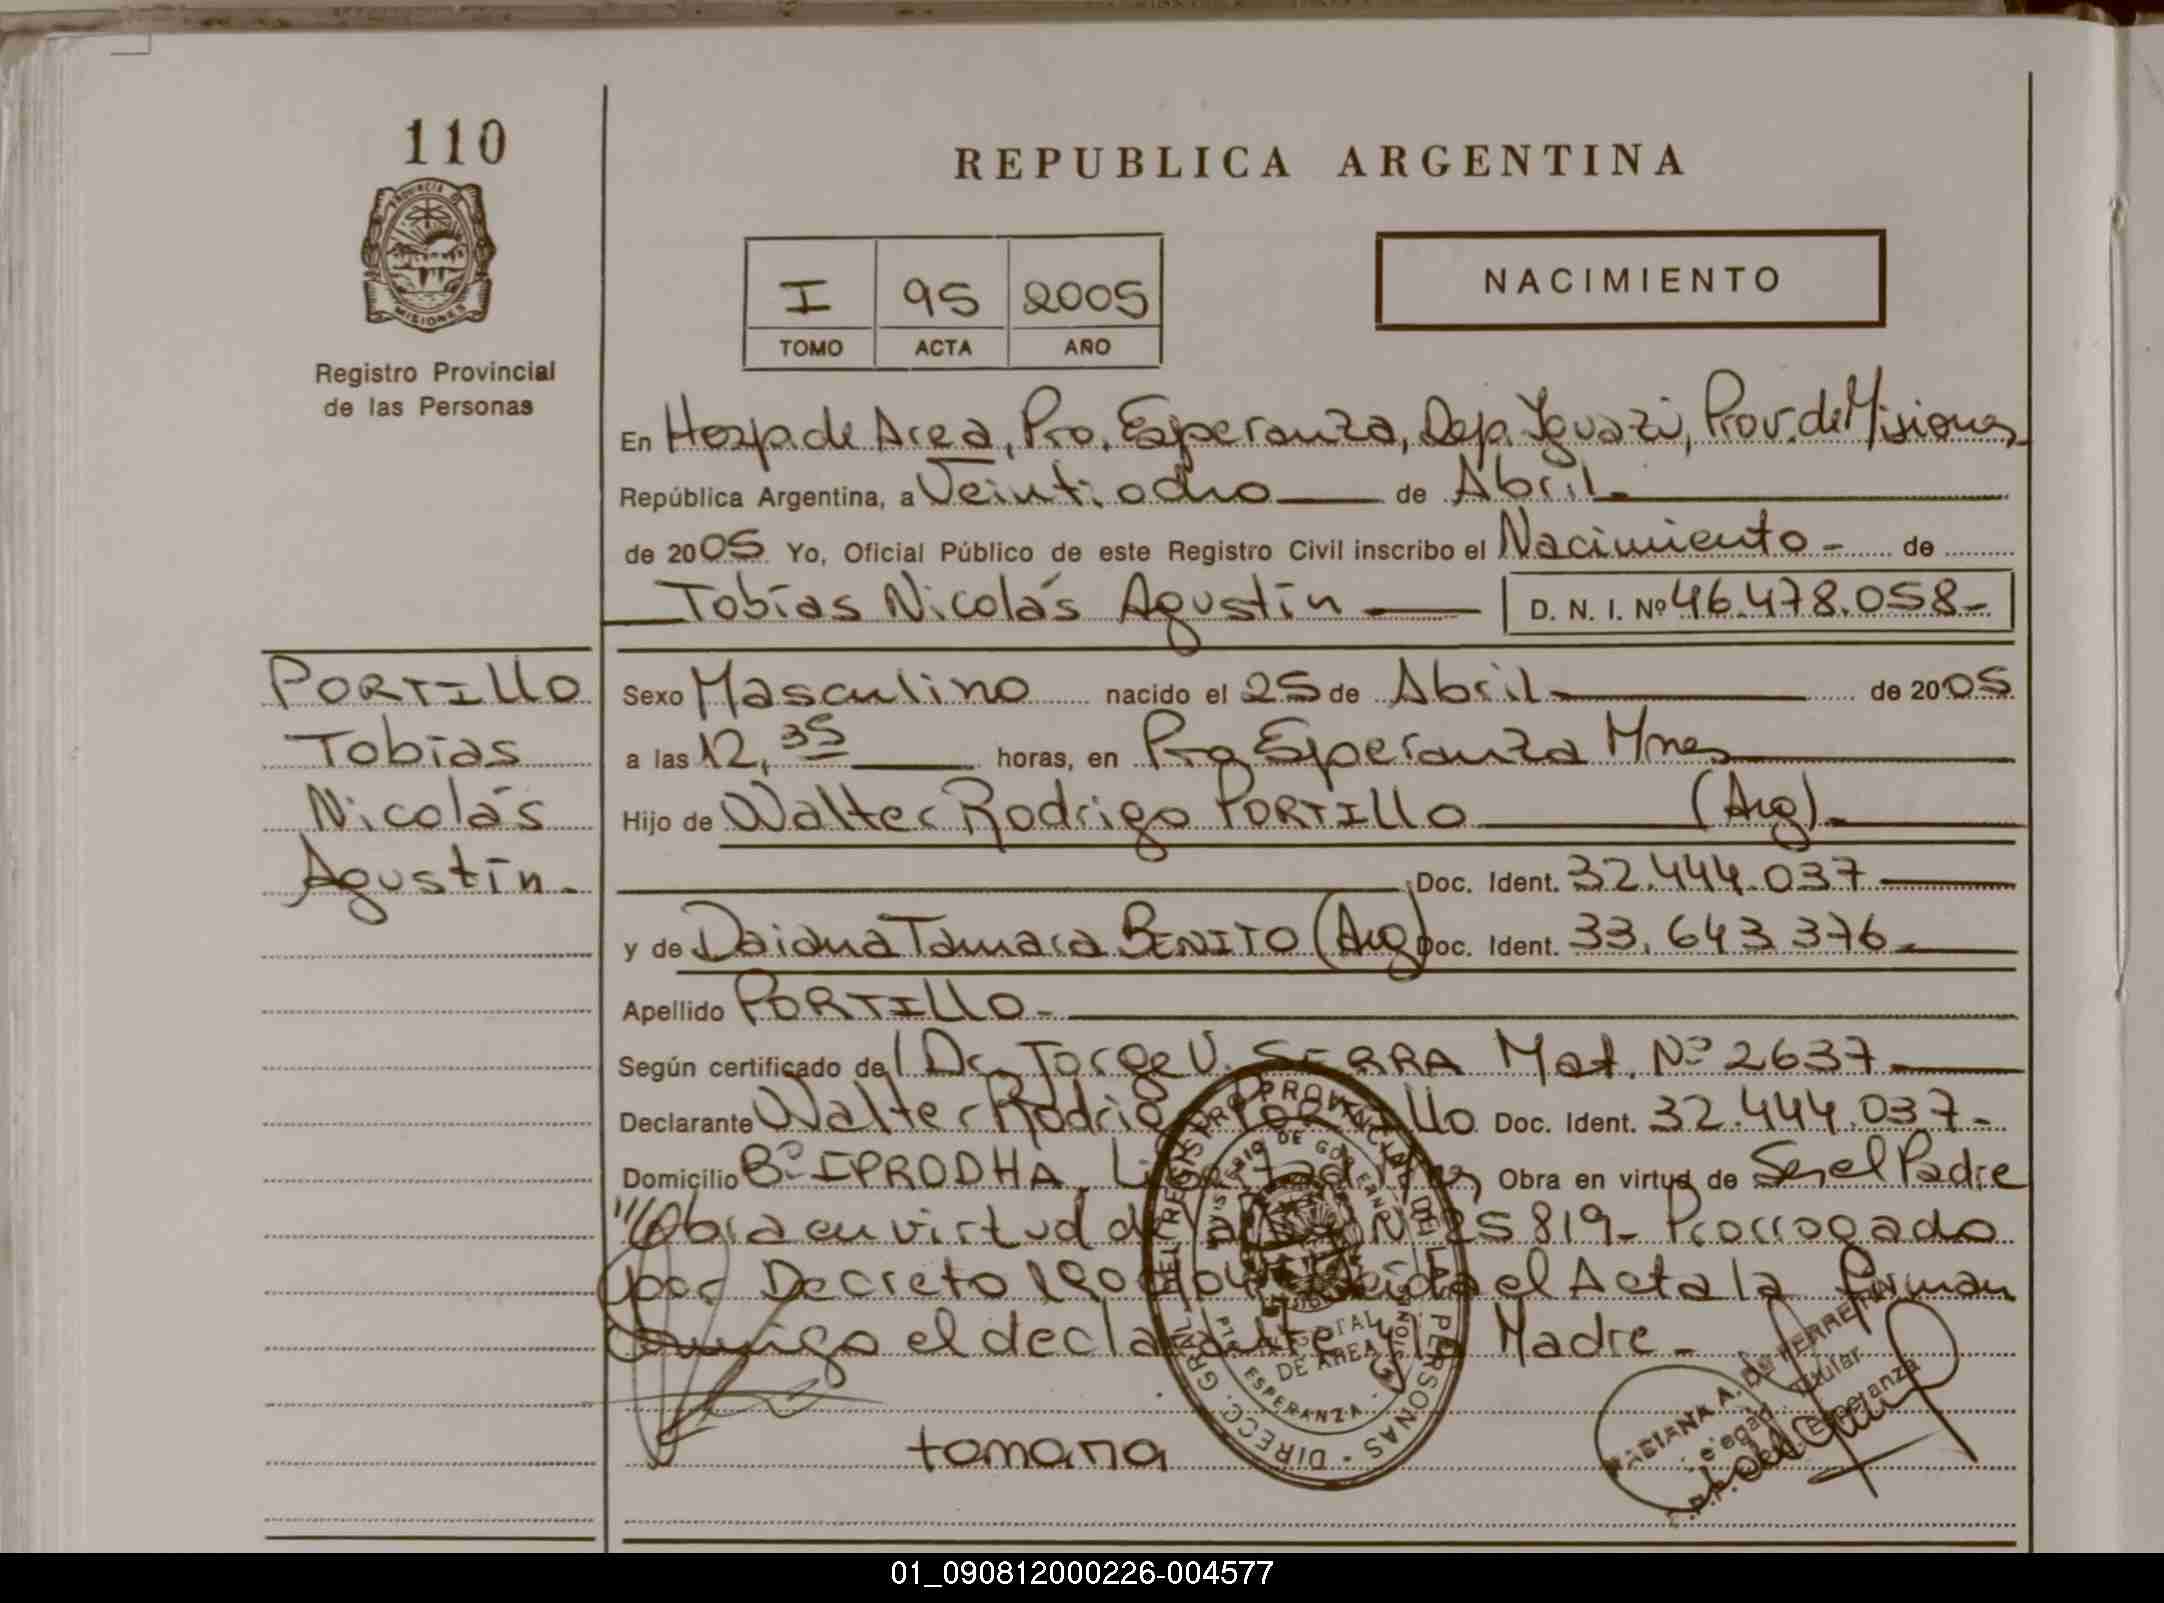 110
PROVINCIA DE
MISIONES
Registro Provincial
de las Personas
REPUBLICA ARGENTINA
I 95 2005
TOMO ACTA AÑO
NACIMIENTO
En Hosp. de Area, Pto. Esperanza, Dep. Iguazú, Prov. de Misiones
República Argentina, a Veintiocho de Abril
de 2005 Yo, Oficial Público de este Registro Civil inscribo el Nacimiento de
Tobías Nicolás Agustín D. N. I. Nº 46.478.058
PORTILLO
Tobías
Nicolás
Agustín.
Sexo Masculino nacido el 25 de Abril de 2005
a las 12,35 horas, en Pto Esperanza Mnes
Hijo de Walter Rodrigo PORTILLO (Arg).
Doc. Ident. 32.444.037
y de Daiana Tamara BENITO (Arg) Doc. Ident. 33.643.376
Apellido PORTILLO
Según certificado de l Dr. Jorge V. SERRA Mat. Nº 2637
Declarante Walter Rodrigo PORTILLO Doc. Ident. 32.444.037
Domicilio Bº IPRODHA, Libertad Mnes Obra en virtud de Ser el Padre
Obra en virtud de Nº 25819 - Prorrogado
por Decreto Leída el Acta la firman
Conmigo el declarante y la Madre.
tamara
DIRECC. GRAL. DEL REGISTRO PROVINCIAL DE LAS PERSONAS
MINISTERIO DE GOBIERNO
DE AREA
PTO ESPERANZA
MISIONES
FABIANA A. FERREIRA
Titular
Esperanza
01_090812000226-004577